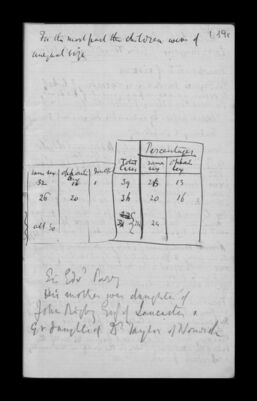 f. 39r
For the most part the children were of
unequal size
Percentages
same sex opposite Total cases same sex opposite sex
32 16 1 39 25 15
26 20 36 20 16
all 24
Sir Edwd Parry
His mother was daughter of
John Rigby Esq of Lancaster &
Gr daughter of Dr Taylor of Norwich